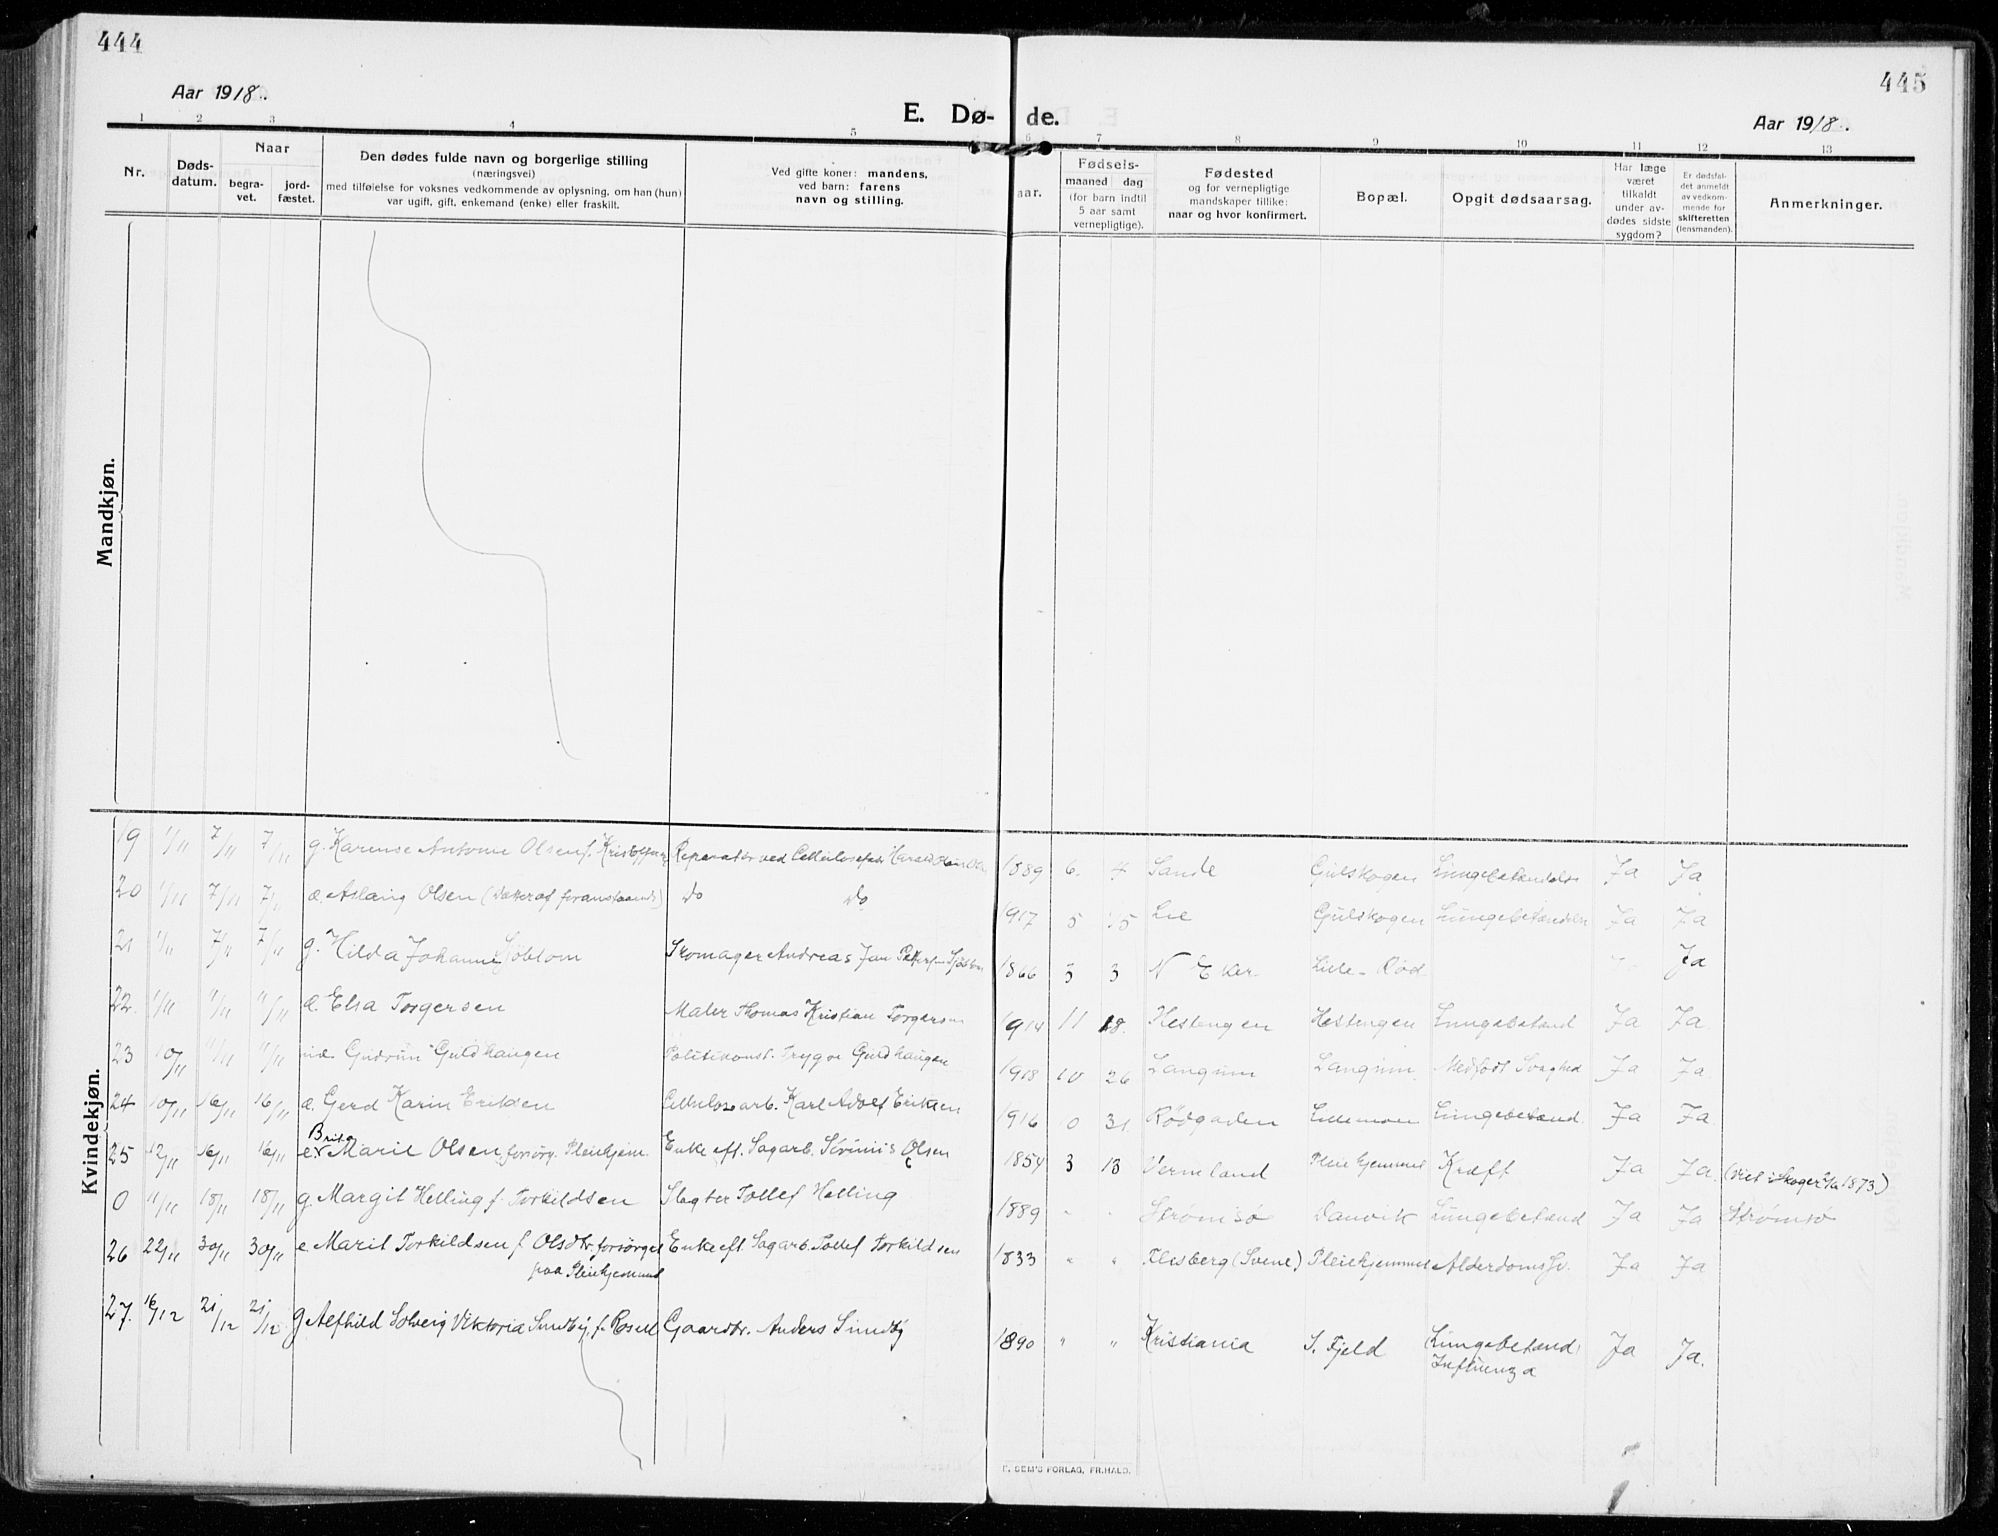 444
445
Aar 1918.
E. Dø- de.
Aar 1918.
1 2 3 4 5 6 7 8 9 10 11 12 13
Nr.
Døds-
datum.
Naar
begra-
vet.
jord-
fæstet.
Den dødes fulde navn og borgerlige stilling
(næringsvei)
med tilføielse for voksnes vedkommende av oplysning, om han (hun)
var ugift, gift, enkemand (enke) eller fraskilt.
Ved gifte koner: mandens,
ved barn: farens
navn og stilling.
aar.
Fødsels-
maaned dag
(for barn indtil
5 aar samt
vernepligtige).
Fødested
og for vernepligtige
mandskaper tillike:
naar og hvor konfirmert.
Bopæl.
Opgit dødsaarsag.
Har læge
været
tilkaldt
under av-
dødes sidste
sygdom?
Er dødsfal-
det anmeldt
av vedkom-
mende for
skifteretten
(lensmanden).
Anmerkninger.
Mandkjøn.
Kvindekjøn.
19 1/11 7/11 7/11 g. Karense Antonie Olsen f. Kristoffersen Reparatør ved Cellulosefabr Harald Olsen 1889 6. 4 Sande Gulskogen Lungebetændelse Ja Ja
20 1/11 7/11 7/11 æ. Aslaug Olsen (Datter af foranstaaende) Do Do 1917 5 15 Lie Gulskogen Lungebetændelse Ja Ja
21 1/11 7/11 7/11 g. Hilda Johanne Sjøblom Skomager Andreas Jan Pettersen Sjøblom 1866 5 3 N Eker Lille-Rød Ja
22. 1/11 11/11 11/11 æ. Elsa Torgersen Maler Thomas Kristian Torgersen 1914 11 18. Hestengen Hestengen Lungebetænd Ja Ja
23 10/11 11/11 11/11 Gudrun Guldhaugen Politikonst. Trygve Guldhaugen 1918 10 26 Langum Langum Medfødt Svaghed Ja Ja
24 10/11 16/11 16/11 æ. Gerd Karin Eriksen Cellulosearb. Karl Adolf Eriksen 1916 10 31. Rødgaden Lillemoen Lungebetænd. Ja Ja
Brita
25 12/11 16/11 16/11 e. Marie Olsen, forsørg. Pleiehjem. Enke eft. Sagarb. Sørinius Olsen 1854 3 13 Vermland Pleiehjemmet Kræft Ja Ja. (Viet i Skoger 1873)
0 11/11 18/11 18/11 g Margit Helling f. Torkildsen Slagter Tollef Helling 1889 " " Strømsø Danvik Lungebetænd Ja Ja Strømsø
26 22/11 30/11 30/11 e. Marit Torkildsen f Olsdtr, forsørget Enke eft Sagarb. Tollef Torkildsen 1833 " " Flesberg (Svene) Pleiehjemmet Alderdomssv. Ja Ja
paa Pleiehjemmet
27. 16/12 21/12 21/12 g Alfhild Solveig Viktoria Sundby, f. Rosell Gaardbr. Anders Sundby 1890 " " Kristiania S. Fjeld Lungebetænd. Ja Ja.
Influenza
F. BEM'S FORLAG, FR.HALD.